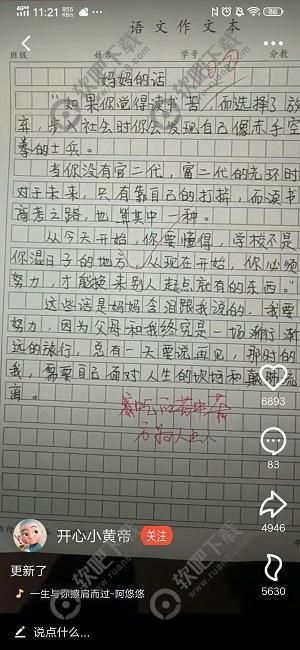 11:21
855 KB/s
86
语文作文本
班级 姓名 学号 分数
妈妈的话
"如果你觉得读书苦,而选择了放
弃,步入社会时你会发现自己像赤手空
拳的士兵。
当你没有官二代,富二代的光环时
对于未来,只有靠自己的打拼,而读书
高考之路,也算其中一种。
从今天开始,你要懂得,学校不是
你混日子的地方,从现在开始,你必须
努力,才能换来别人起点就有的东西。"
这些话是妈妈含泪跟我说的,我要
努力,因为父母和我终究是一场渐行渐
远的旅行,总有一天要说再见,那时的
我,需要自己面对人生的坎坷和颠沛流
离。
苦中苦
人上人
6893
83
4946
5630
开心小黄帝
关注
更新了
一生与你擦肩而过-阿悠悠
说点什么...
软吧下载